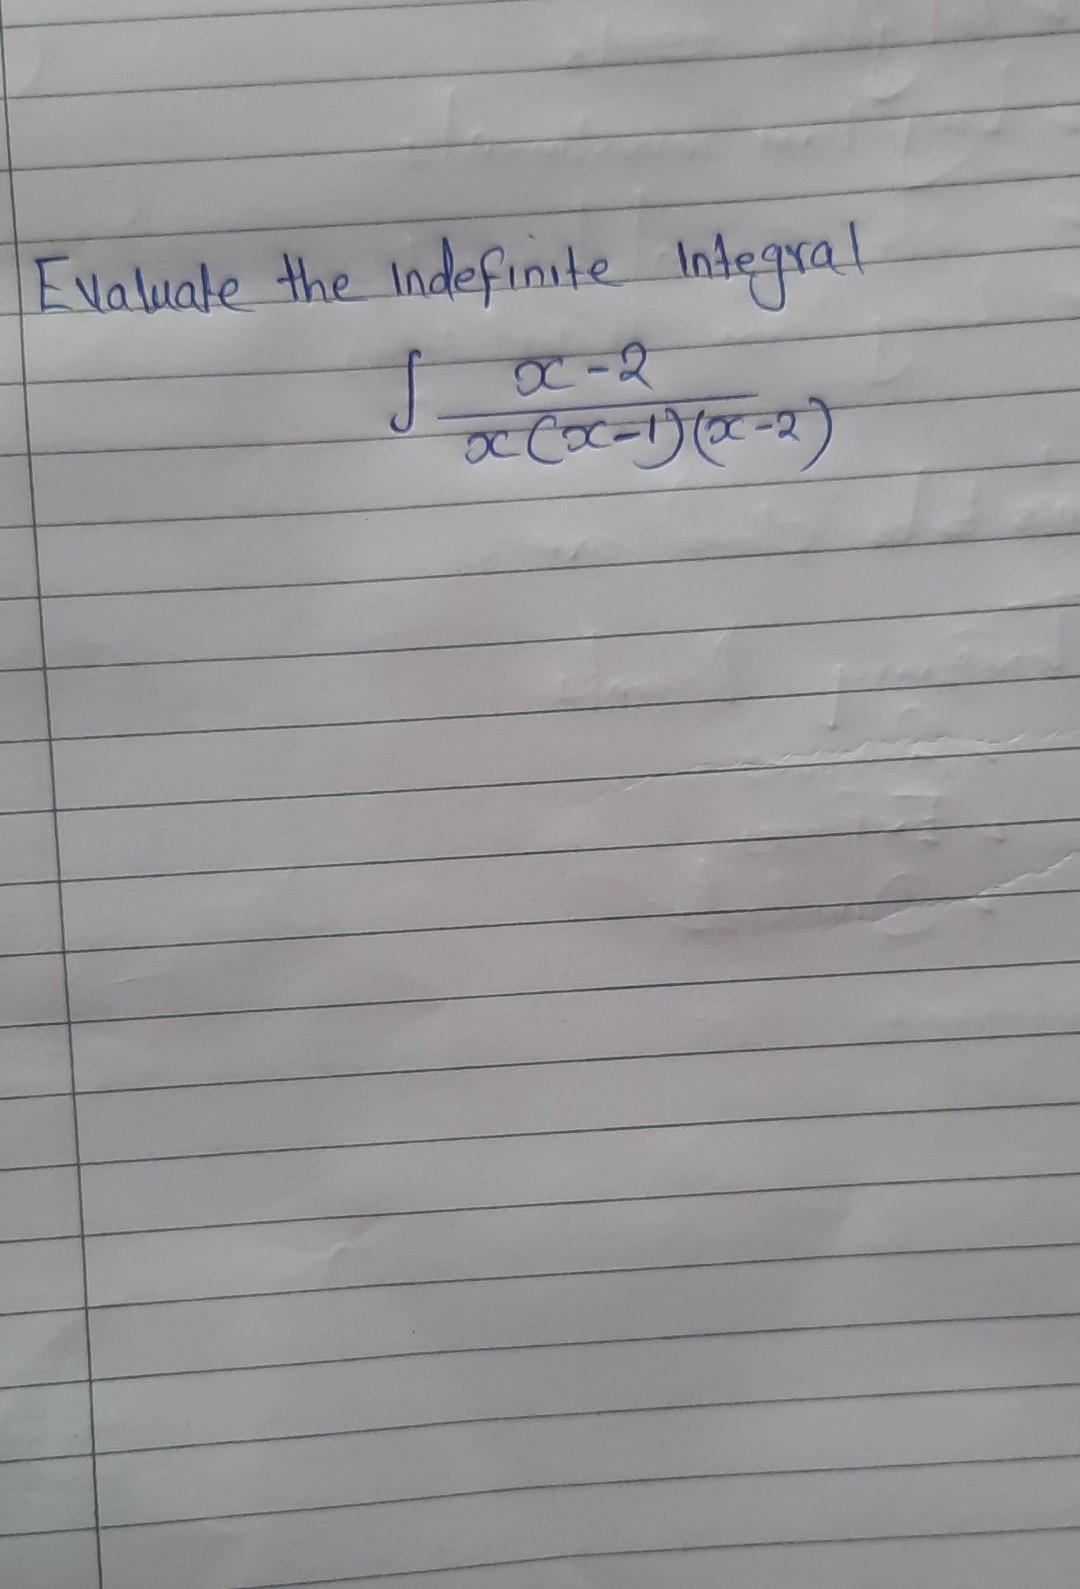 Evaluate the indefinite integral
∫ x-2 / x(x-1)(x-2)